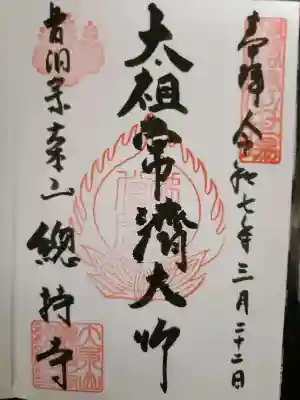 奉拝 令和七年三月二十二日
太祖常済大師
曹洞宗大本山 總持寺